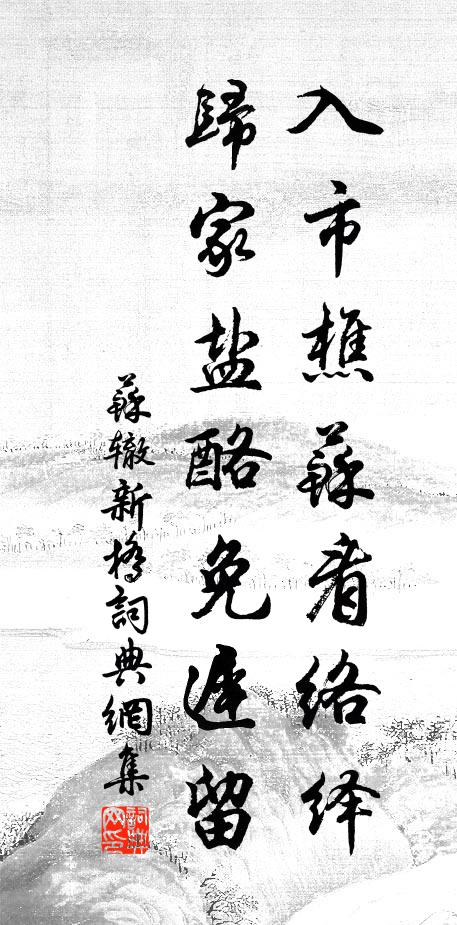 入市樵蘇看络绎
歸家盐酪免遲留
蘇辙新橋詞典網集